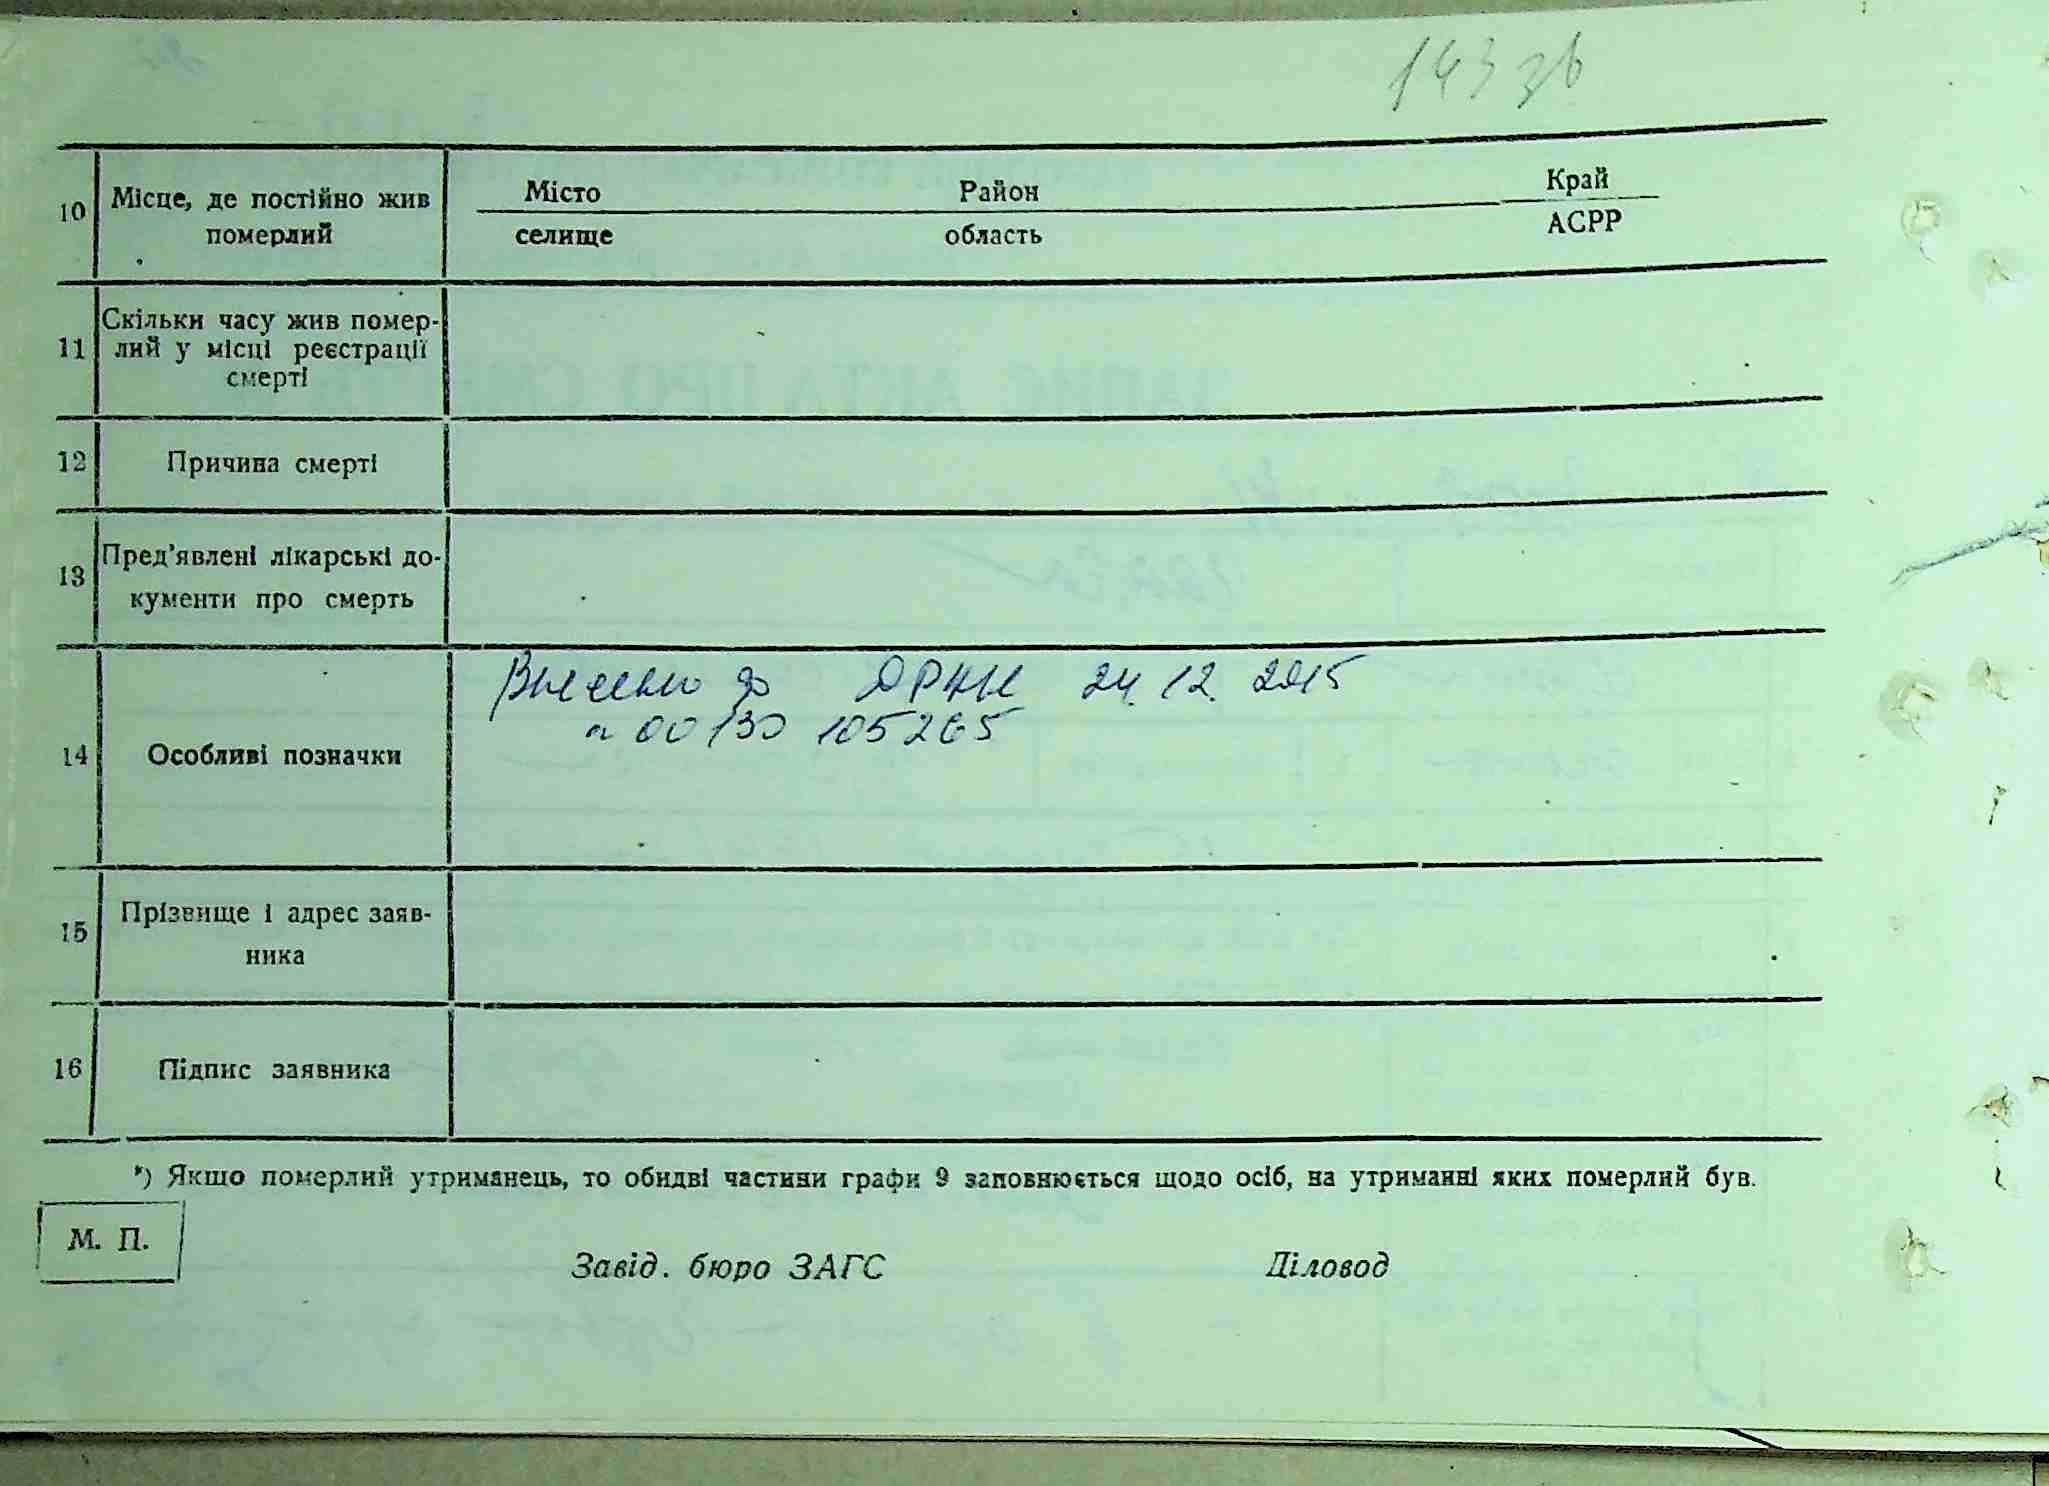 143 зв
Місто Район Край
10 Місце, де постійно жив
померлий
селище область АСРР
Скільки часу жив помер-
11 лий у місці реєстрації
смерті
12 Причина смерті
Пред'явлені лікарські до-
13
кументи про смерть
Внесено до 24.12.2015
00130 105265
14 Особливі позначки
Прізвище і адрес заяв-
15
ника
16 Підпис заявника
*) Якщо померлий утриманець, то обидві частини графи 9 заповнюється щодо осіб, на утриманні яких померлий був.
М. П.
Завід. бюро ЗАГС Діловод